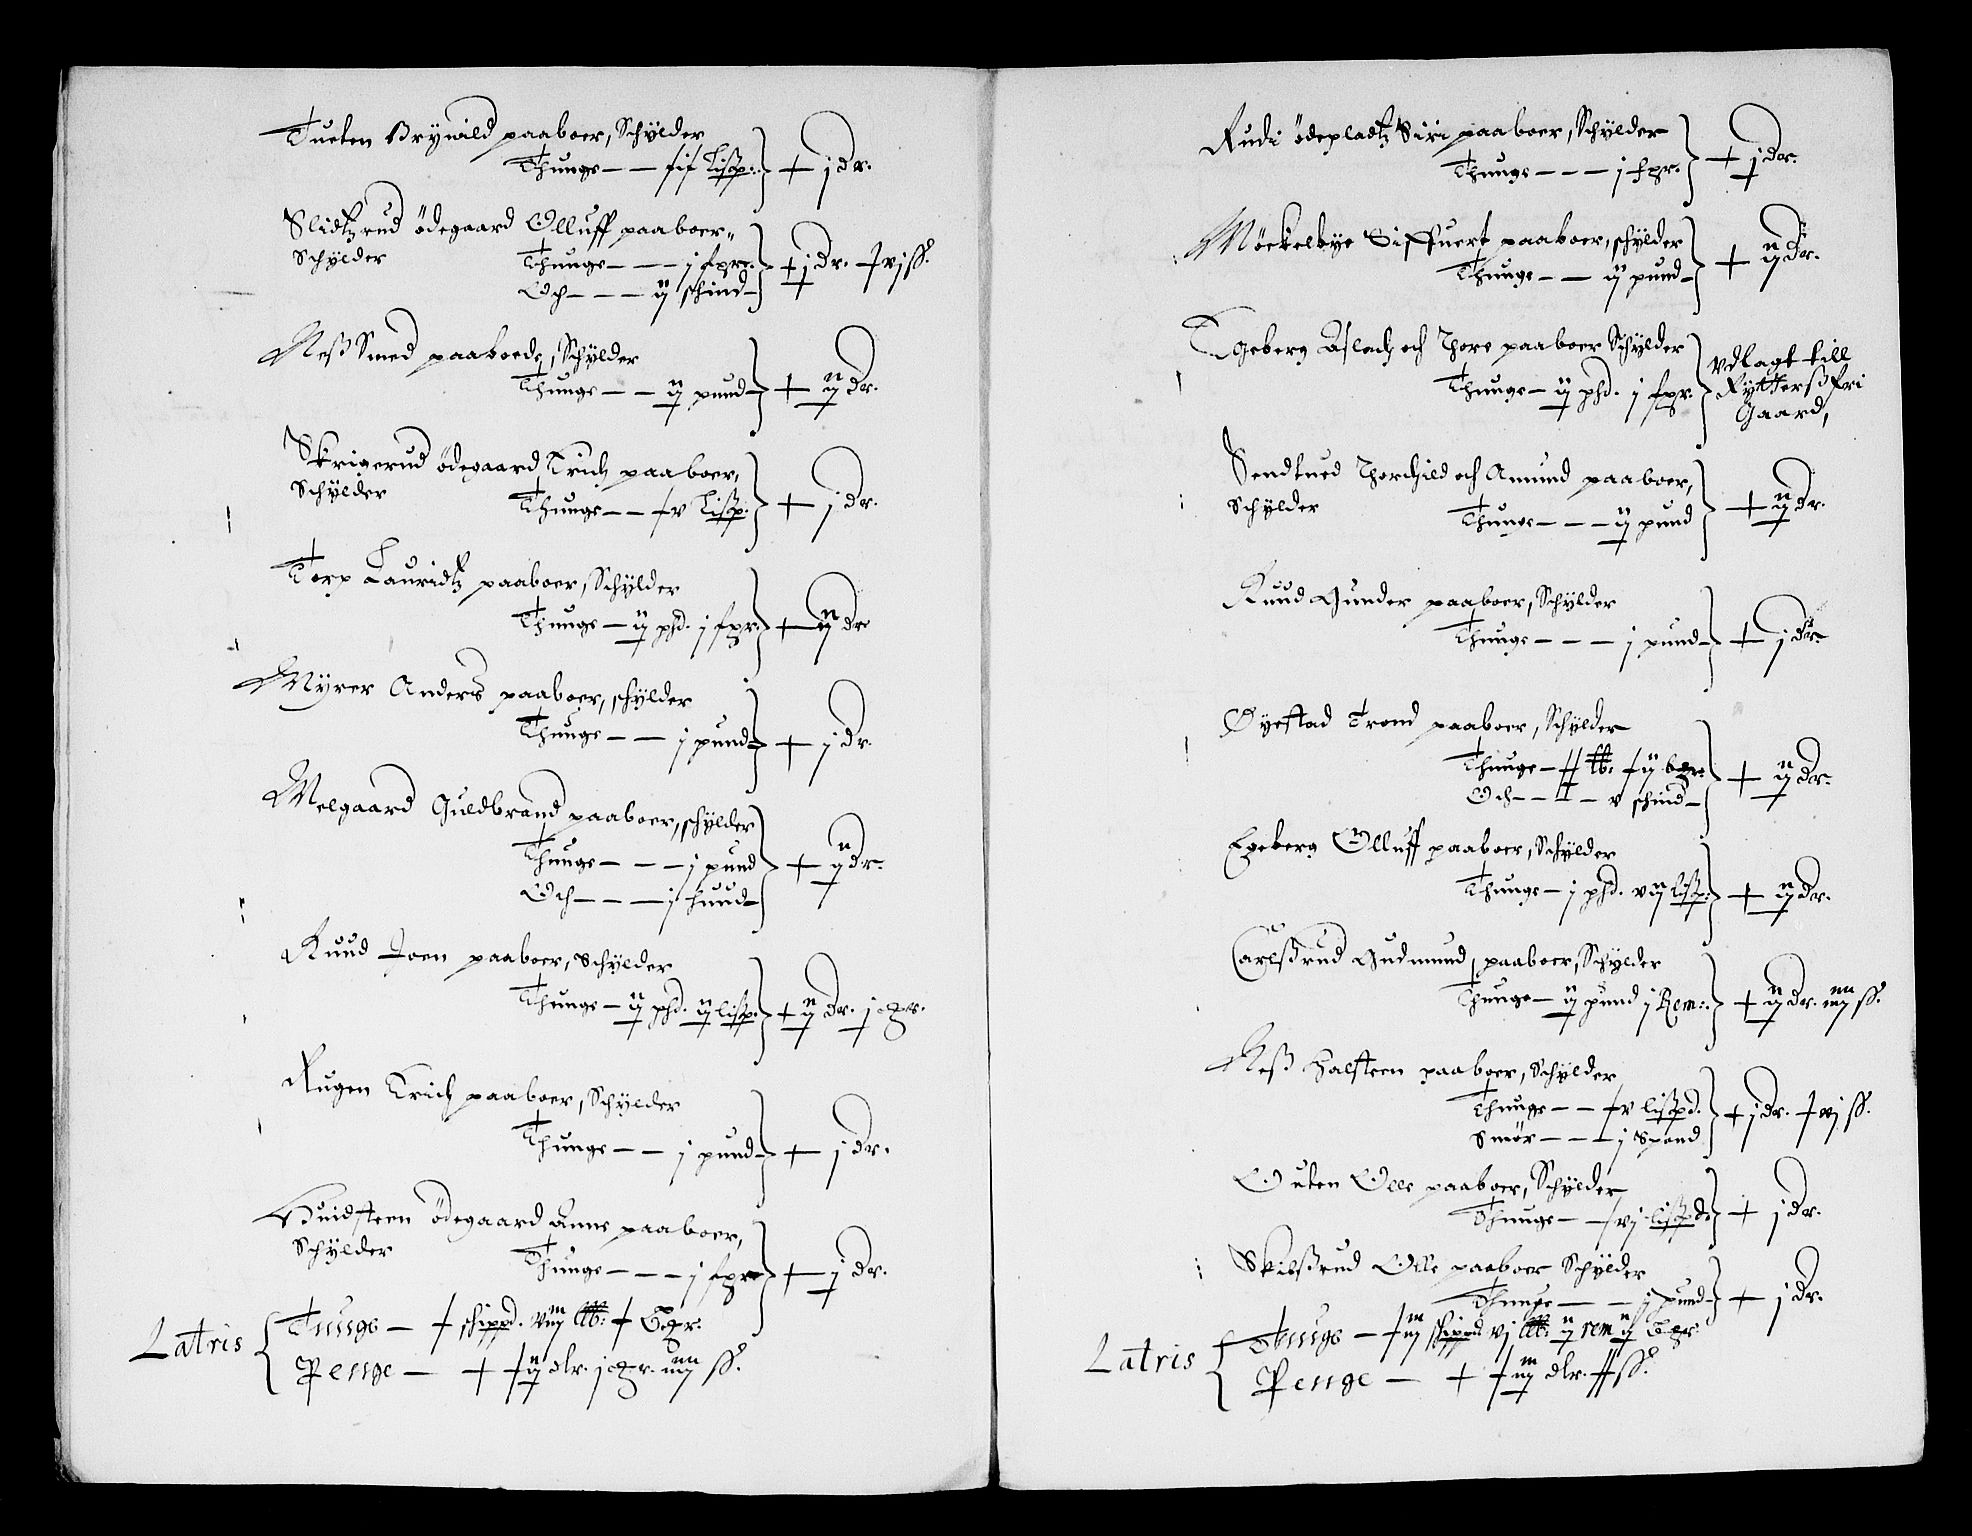 Tueten Brÿnild paaboer, Schÿlder
Thunge — — Lißp: + j dr.
Slidtzrud ödegaard Olluff paaboer„
Schÿlder Thunge — — — j fpr. + j dr. + vj ß.
Och — — — ij schind
Neß Smed paaboede, Schÿlder
Thunge — — ij pund + ij dr.
Skrigerud ödegaard Erich paaboer,
Schÿlder Thunge — — + v Lißp. + j dr.
Torp Lauridtz paaboer, Schÿlder
Thunge — ij phd. j fpr. + ij dr
Mÿrer Anders paaboer, schÿlder
Thunge — — j pund + j dr.
Melgaard Guldbrand paaboer, schÿlder
Thunge — — — j pund + ij dr.
Och — — — j huud
Ruud Joen paaboer, Schÿlder
Thunge — ij phd. ij lißp. + ij dr. j
Rugen Erich paaboer, Schÿlder
Thunge — — j pund + j dr.
Huidsteen ödegaard Anne paaboer,
Schÿlder Thunge — — — j fpr + j dr.
Latris Tunge — + schippd. viij lb: +
Penge — + + ij dlr. j iiij ß.
Rudi ödepladtz Siri paaboer, Schÿlder
Thunge — — — j fpr. + j dr.
Möckelbye Siffuert paaboer, schÿlder
Thunge — — ij pund + ij dr.
Egeberg Aslach och Thore paaboer Schÿlder
Thunge — ij phd. j fpr. vdlagt till
Rÿtterß fri
Gaard,
Sendtued Thorchild och Amund paaboer,
Schÿlder Thunge — — — ij pund + ij dr.
Ruud Gunder paaboer, Schÿlder
Thunge — — — j pund + j dr.
Øyestad Trond paaboer, Schÿlder
Thunge — lb: + ij + ij dr.
Och — — — v schind
Egeberg Olluff paaboer, Schÿlder
Thunge — j phd. vij lißp: + ij dr.
Carlßrud Gudmund, paaboer, Schÿlder
Thunge — ij pund j Rem: + ij dr. iiij ß.
Neß Halsteen paaboer, Schÿlder
Thunge — — + v lißpd. + j dr. + vj ß.
Smör — — — j Spand
Outen Olle paaboer, Schÿlder
Thunge — + vj lißpd. + j dr.
Skilßrud Olle paaboer Schÿlder
Thunge — — j pund + j dr.
Latris Tunge — + iij schippd vj lb: ij rem ij
Penge — + + iij dlr. ß.